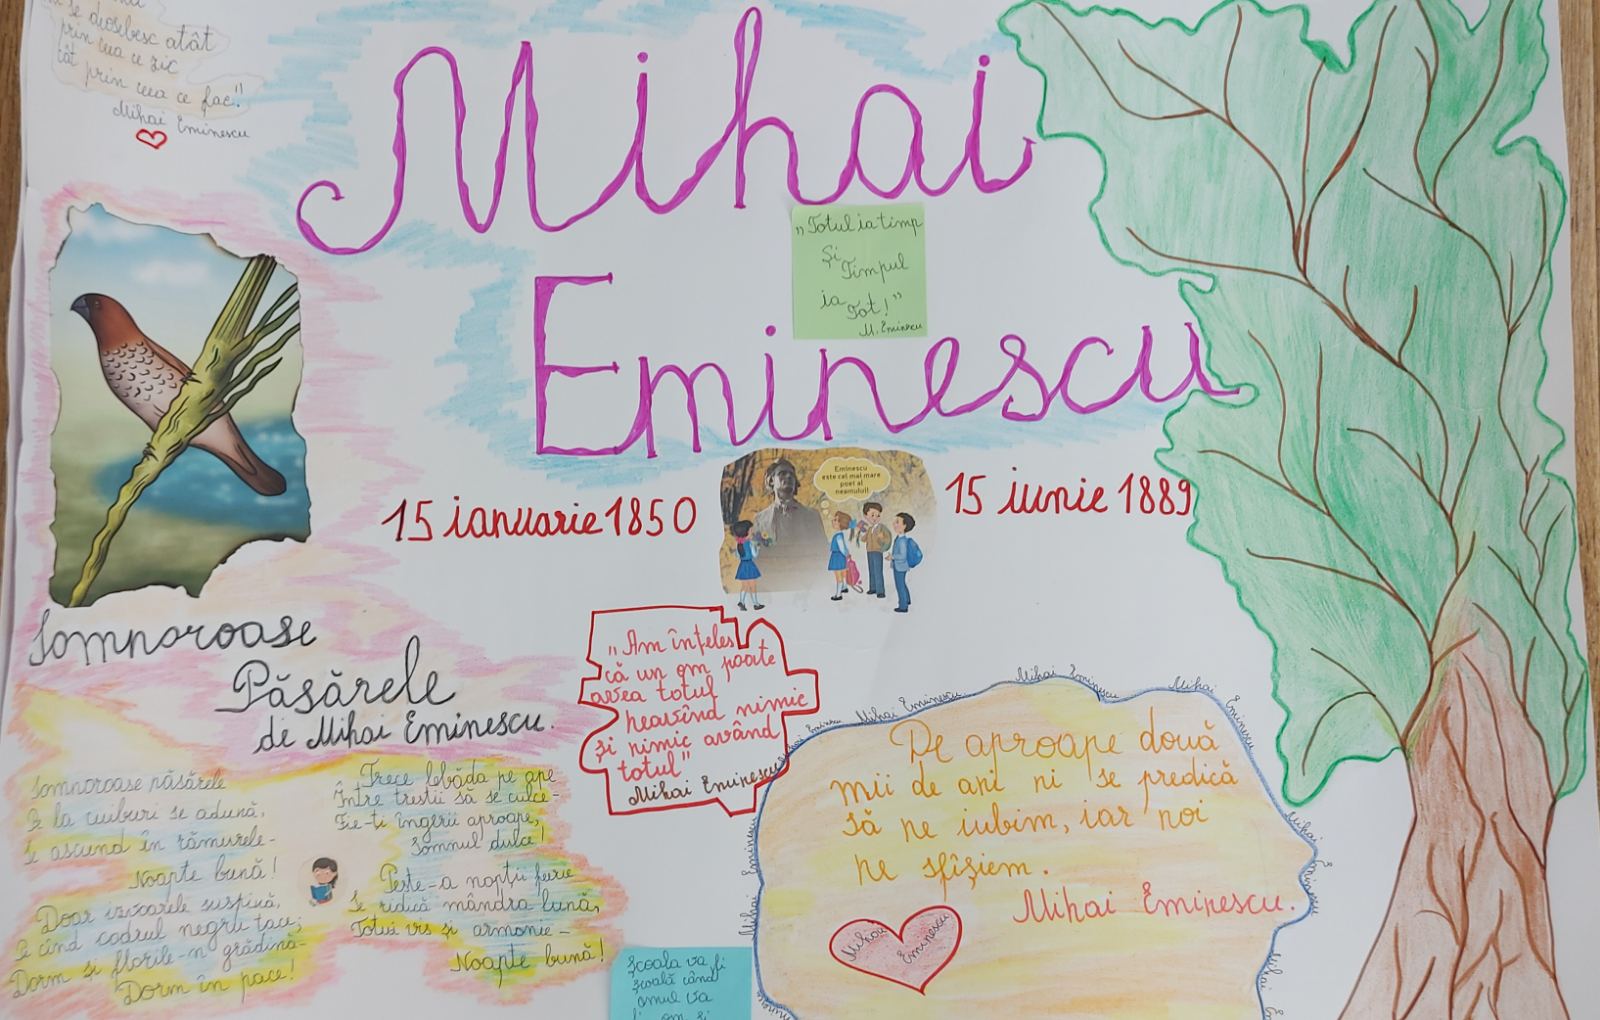 se deosebesc atât
prin ceea ce zic
cât prin ceea ce fac."
Mihai Eminescu
Mihai
Eminescu
„Totul ia timp
Și
Timpul
ia
Tot!”
M. Eminescu
15 ianuarie 1850
15 iunie 1889
Eminescu
este cel mai mare
poet al
neamului!
Somnoroase
Păsărele
de Mihai Eminescu.
Somnoroase păsărele
Pe la cuiburi se adună,
Se ascund în rămurele-
Noapte bună!
Doar izvoarele suspină,
Pe cînd codrul negru tace;
Dorm și florile-n grădină-
Dorm în pace!
Trece lebăda pe ape
Între trestii să se culce-
Fie-ți îngerii aproape,
Somnul dulce!
Peste-a nopții feerie
Se ridică mândra lună,
Totu-i vis și armonie-
Noapte bună!
„Am înțeles
că un om poate
avea totul
neavînd nimic
și nimic având
totul”
Mihai Eminescu
Mihai Eminescu Mihai Eminescu Mihai Eminescu Mihai Eminescu
De aproape două
mii de ani ni se predică
să ne iubim, iar noi
ne sfîșiem.
Mihai Eminescu.
Mihai Eminescu
Mihai Eminescu
Mihai Eminescu
Mihai
Școala va fi
școală când
omul va
fi om și